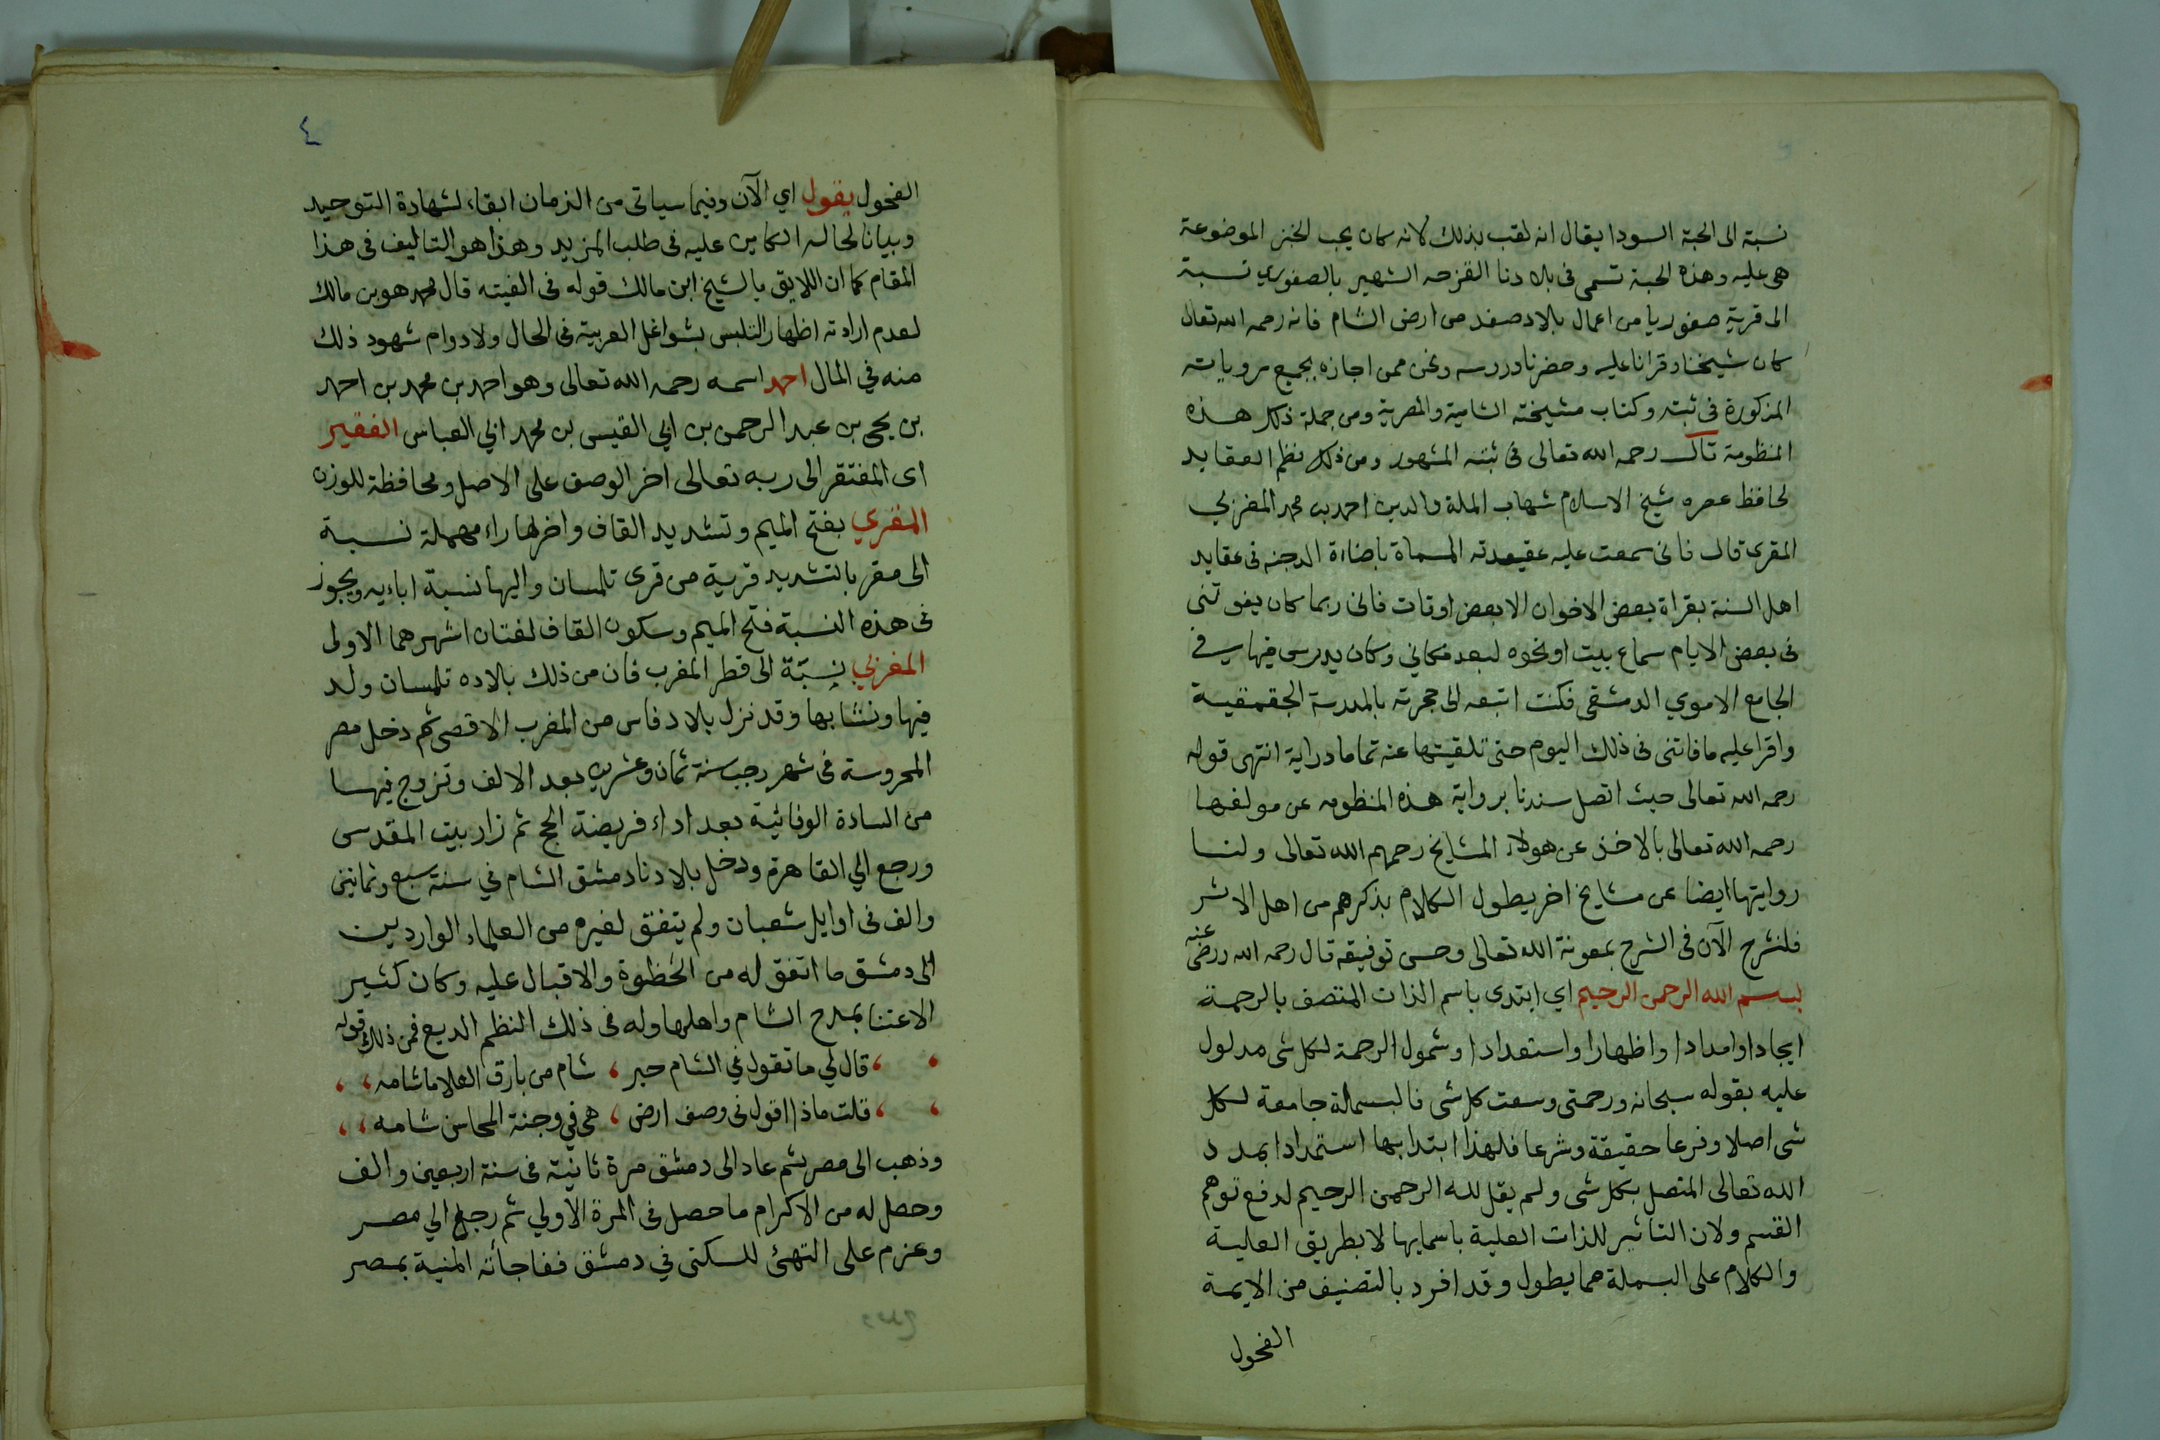 نسبة الى الحبة السودا يقال انه لقب بذلك لانه كان يحب الخبز الموضوعة
هى عليه وهذه الحبة تسمى فى بلادنا القزحه الشهير بالصفوري نسبة
الى قرية صفوريا من اعمال بلاد صفد من ارض الشام فانه رحمه الله تعالى
كان شيخنا وقرانا عليه وحضرنا دروسه ونحن ممن اجازه بجميع مروياته
المذكورة فى ثبته وكتاب مشيخته الشامية والمصرية ومن جملة ذلك هذه
المنظومة قال رحمه الله تعالى فى ثبته المشهور ومن ذلك نظم العقايد
لحافظ عصره شيخ الاسلام شهاب الملة والدين احمد بن محمد المغربي
المقرى قال فانى سمعت عليه عقيدته المسماة باضاءة الدجنه فى عقايد
اهل السنة بقراة بعض الاخوان الا بعض اوقات فانى ربما كان يفوتنى
فى بعض الايام سماع بيت او نحوه لبعد مكاني وكان يدرس فيها في
الجامع الاموي الدمشقى فكنت اتبعه الى حجرته بالمدرسة الجقمقية
واقرا عليه ما فاتنى فى ذلك اليوم حتى تلقيتها عنه تماما دراية انتهى قوله
رحمه الله تعالى حيث اتصل سندنا برواية هذه المنظومه عن مولفها
رحمه الله تعالى بالاخذ عن هولاء المشايخ رحمهم الله تعالى ولنا
روايتها ايضا عن مشايخ اخر يطول الكلام بذكرهم من اهل الاثر
فلنشرح الآن فى الشرح بمعونة الله تعالى وحسن توفيقه قال رحمه الله ورضى عنه
بسم الله الرحمن الرحيم اي ابتدى باسم الذات المتصف بالرحمة
ايجادا وامدادا واظهارا واستعدادا وشمول الرحمة لكل شى مدلول
عليه بقوله سبحانه ورحمتى وسعت كل شى فالبسملة جامعة لكل
شى اصلا وفرعا حقيقة وشرعا فلهذا ابتدا بها استمدادا بمدد
الله تعالى المتصل بكل شى ولم يقل لله الرحمن الرحيم لدفع توهم
القسم ولان التاثير للذات العلية باسمايها لا بطريق العلية
والكلام على البسملة مما يطول وقد افرد بالتصنيف من الايمة
الفحول
٤
الفحول يقول اي الآن وفيما سياتى من الزمان ابقاء لشهادة التوحيد
وبيانا لحاله الكاين عليه فى طلب المزيد وهذا هو التاليف فى هذا
المقام كما ان اللايق بالشيخ ابن مالك قوله فى الفيته قال محمد هو بن مالك
لعدم ارادته اظهار التلبس بشواغل العربية فى الحال ولا دوام شهود ذلك
منه في المال احمد اسمه رحمه الله تعالى وهو احمد بن محمد بن احمد
بن يحيى بن عبد الرحمن بن ابي القيسى بن محمد ابي العباس الفقير
اى المفتقر الى ربه تعالى اخر الوصف على الاصل ومحافظة للوزن
المقري بفتح الميم وتشديد القاف واخرها راء مهملة نسبة
الى مقر بالتشديد قرية من قرى تلمسان واليها نسبة ابايه ويجوز
فى هذه النسبة فتح الميم وسكون القاف لغتان اشهرهما الاولى
المغربي نسبة الى قطر المغرب فان من ذلك بلاده تلمسان ولد
فيها ونشا بها وقد نزل بلاد فاس من المغرب الاقصى ثم دخل مصر
المحروسة فى شهر رجب سنة ثمان وعشرين بعد الالف وتزوج فيها
من السادة الوفائية بعد اداء فريضة الحج ثم زار بيت المقدس
ورجع الي القاهرة ودخل بلادنا دمشق الشام في سنة سبع وثمانين
والف فى اوايل شعبان ولم يتفق لغيره من العلماء الواردين
الى دمشق ما اتفق له من الحظوة والاقبال عليه وكان كثير
الاعتنا بمدح الشام واهلها وله فى ذلك النظم البديع فمن ذلك قوله
، ، قال لي ما تقول في الشام حبر ، شام من بارق العلا ما شامه ، ،
، ، قلت ماذا اقول فى وصف ارض ، هى في وجنة المحاسن شامه ، ،
وذهب الى مصر ثم عاد الى دمشق مرة ثانية فى سنة اربعين والف
وحصل له من الاكرام ما حصل فى المرة الاولي ثم رجع الي مصر
وعزم على التهئ للسكنى في دمشق ففاجأته المنية بمصر